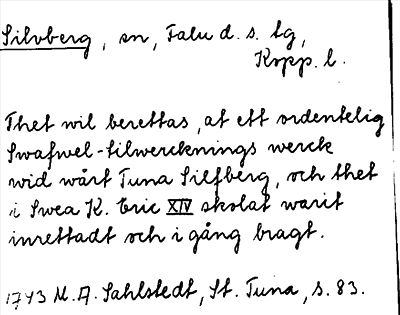 Silvberg, sn, Falu d. s. lg,
Kopp. l.
Thet wil berettas, at ett ordentelig
Swafwel-tilwercknings werck
wid wårt Tuna Silfberg, och thet
i Swea K. Eric XIV skolat warit
inrettadt och i gång bragt.
1743 M. A. Sahlstedt, St. Tuna, s. 83.